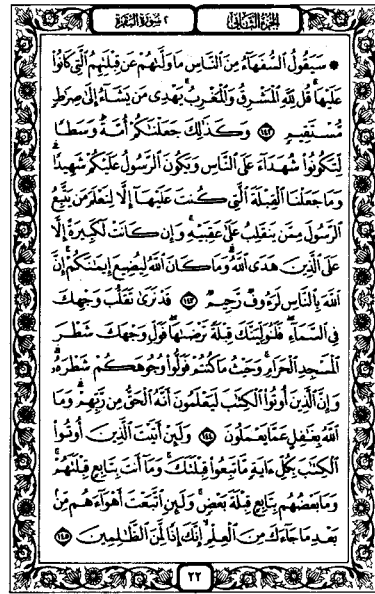 الجزء الثاني
٢ سورة البقرة
۞ سَيَقُولُ ٱلسُّفَهَآءُ مِنَ ٱلنَّاسِ مَا وَلَّىٰهُمْ عَن قِبْلَتِهِمُ ٱلَّتِى كَانُوا۟
عَلَيْهَا ۚ قُل لِّلَّهِ ٱلْمَشْرِقُ وَٱلْمَغْرِبُ ۚ يَهْدِى مَن يَشَآءُ إِلَىٰ صِرَٰطٍ
مُّسْتَقِيمٍ ١٤٢ وَكَذَٰلِكَ جَعَلْنَٰكُمْ أُمَّةً وَسَطًا
لِّتَكُونُوا۟ شُهَدَآءَ عَلَى ٱلنَّاسِ وَيَكُونَ ٱلرَّسُولُ عَلَيْكُمْ شَهِيدًا ۗ
وَمَا جَعَلْنَا ٱلْقِبْلَةَ ٱلَّتِى كُنتَ عَلَيْهَآ إِلَّا لِنَعْلَمَ مَن يَتَّبِعُ
ٱلرَّسُولَ مِمَّن يَنقَلِبُ عَلَىٰ عَقِبَيْهِ ۚ وَإِن كَانَتْ لَكَبِيرَةً إِلَّا
عَلَى ٱلَّذِينَ هَدَى ٱللَّهُ ۗ وَمَا كَانَ ٱللَّهُ لِيُضِيعَ إِيمَٰنَكُمْ ۚ إِنَّ
ٱللَّهَ بِٱلنَّاسِ لَرَءُوفٌ رَّحِيمٌ ١٤٣ قَدْ نَرَىٰ تَقَلُّبَ وَجْهِكَ
فِى ٱلسَّمَآءِ ۖ فَلَنُوَلِّيَنَّكَ قِبْلَةً تَرْضَىٰهَا ۚ فَوَلِّ وَجْهَكَ شَطْرَ
ٱلْمَسْجِدِ ٱلْحَرَامِ ۚ وَحَيْثُ مَا كُنتُمْ فَوَلُّوا۟ وُجُوهَكُمْ شَطْرَهُۥ ۗ
وَإِنَّ ٱلَّذِينَ أُوتُوا۟ ٱلْكِتَٰبَ لَيَعْلَمُونَ أَنَّهُ ٱلْحَقُّ مِن رَّبِّهِمْ ۗ وَمَا
ٱللَّهُ بِغَٰفِلٍ عَمَّا يَعْمَلُونَ ١٤٤ وَلَئِنْ أَتَيْتَ ٱلَّذِينَ أُوتُوا۟
ٱلْكِتَٰبَ بِكُلِّ ءَايَةٍ مَّا تَبِعُوا۟ قِبْلَتَكَ ۚ وَمَآ أَنتَ بِتَابِعٍ قِبْلَتَهُمْ ۚ
وَمَا بَعْضُهُم بِتَابِعٍ قِبْلَةَ بَعْضٍ ۚ وَلَئِنِ ٱتَّبَعْتَ أَهْوَآءَهُم مِّنۢ
بَعْدِ مَا جَآءَكَ مِنَ ٱلْعِلْمِ ۙ إِنَّكَ إِذًا لَّمِنَ ٱلظَّٰلِمِينَ ١٤٥
٢٢